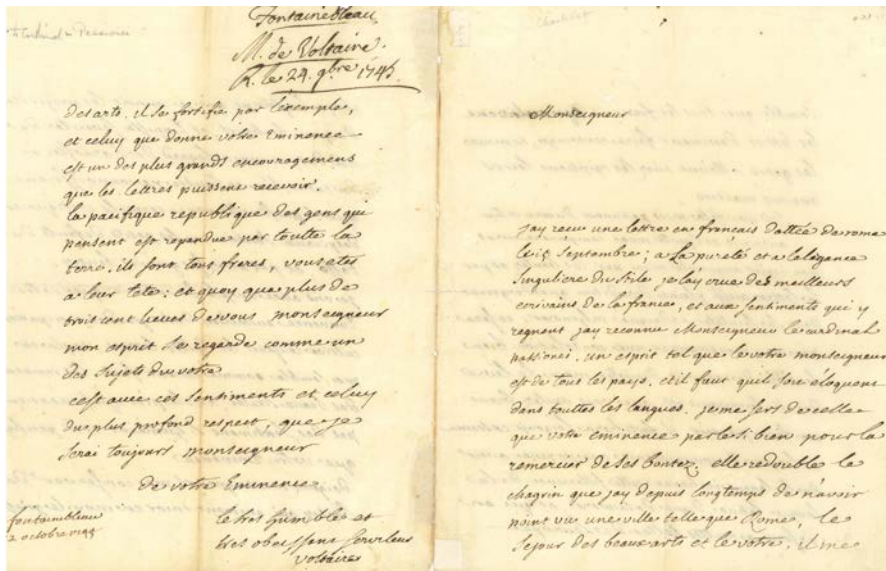 Fontainebleau
M. de Voltaire.
R. le 24. 9bre 1745.
des arts. il se fortifie par l'exemple,
et celuy que donne votre Eminence
est un des plus grands encouragemens
que les lettres puissent recevoir.
la pacifique republique des gens qui
pensent est repandue par toutte la
terre. ils sont tous freres, vous etes
a leur tete: et quoy que plus de
trois cent lieues de vous monseigneur
mon esprit se regarde comme un
des sujets du votre
cest avec ces sentiments et celuy
du plus profond respect, que je
serai toujours monseigneur
de votre Eminence
fontainebleau
octobre
le tres humble et
tres obeissant serviteur
voltaire
Monseigneur
jay recu une lettre en français dattée de rome
le 15 Septembre; a La pureté et a lelegance
singuliere du stile je lay crue des meilleurs
ecrivains de la france, et aux sentiments qui y
regnent jay reconnu Monseigneur le cardinal
passionei. un esprit tel que le votre monseigneur
est de tous les pays. et il faut quil soit éloquent
dans touttes les langues. je me sers de celle
que votre eminence parle si bien pour la
remercier de ses bontez. elle redouble le
chagrin que jay depuis longtemps de n'avoir
point vu une ville telle que Rome, le
sejour des beaux arts et le votre. il me